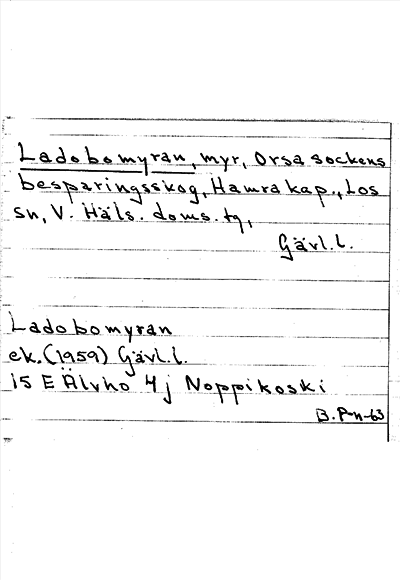 Ladobomyran, myr, Orsa sockens
besparingsskog, Hamra kap., Los
sn, V. Häls. doms. tg,
Gävl.l.
Ladobomyran
ek. (1959) Gävl.l.
15 E Älvho 4j Noppikoski
B. P-n-63